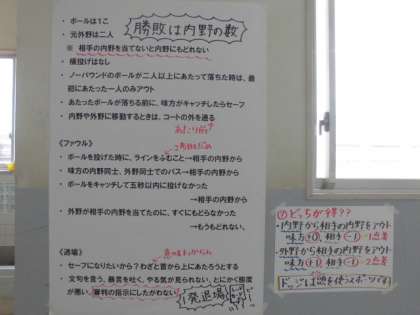 ・ボールは1こ
勝敗は内野の数
・元外野は二人
※ 相手の内野を当てないと内野にもどれない
・横投げはなし
・ノーバウンドのボールが二人以上にあたって落ちた時は、最
初にあたった一人のみアウト
・あたったボールが落ちる前に、味方がキャッチしたらセーフ
・内野や外野に移動するときは、コートの外を通る
《ファウル》
・ボールを投げた時に、ラインをふむこと→相手の内野から
・味方の内野同士、外野同士でのパス→相手の内野から
・ボールをキャッチして五秒以内に投げなかった
→相手の内野から
・外野が相手の内野を当てたのに、すぐにもどらなかった
→もうもどれない。
《退場》
・セーフになりたいから？わざと首から上にあたろうとする
・文句を言う、暴言を吐く、やる気が見られない、とにかく態度
が悪い。審判の指示にしたがわない
一発退場
⑦どっちが得??
・内野から相手の内野をアウト
味方+0、相手-1 1点差
・外野から相手の内野をアウト
味方+1、相手-1 2点差
ドッジは頭を使うスポーツです